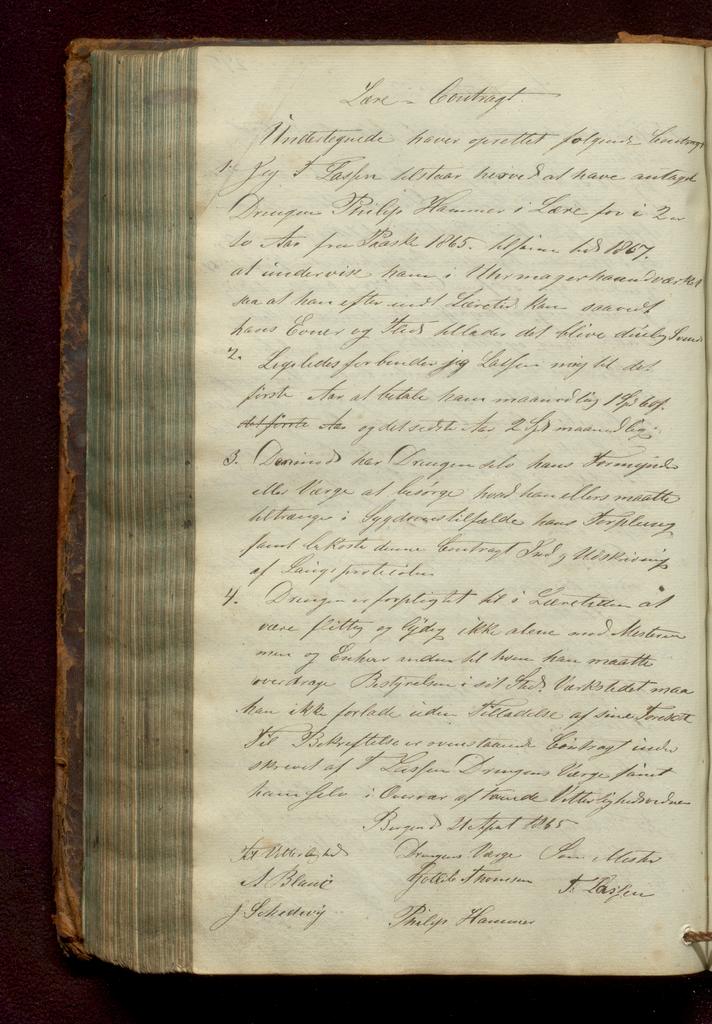 Lære - Contragt
Undertegnede haver oprettet følgende Contragt
1. Jeg F Lassen tilstaar herved at have antaget
Drengen Philip Hammer i Lære for i 2
to Aar fra Paaske 1865. til samme tid 1867.
at undervise ham i Uhrmagerhaandværket
saa at han efter endt Læretid kan saavidt
hans Evner og Flid tillader det blive duelig Svend
2. Ligeledes forbinder jeg Lassen mig til det
første Aar at betale ham maanedlig 1 Spd 60 s.
det første Aar og det sidste Aar 2 Spd maanedlig.
3. Derimod har Drengen selv hans Formynder
eller Værge at besørge hvad han ellers maatte
tiltrænge i Sygdomstilfælde hans Forpleining
samt bekoste denne Contragt Ind og Udskrivning
af Laugsprotocolen
4. Drengen er forpligtet til i Læretiden at
være flittig og lydig ikke alene mod Mesteren
men og Enhver anden til hvem han maatte
overdrage Bestyrelsen i sit Sted. Værkstedet maa
han ikke forlade uden Tilladelse af sine Foresatte
Til Bekræftelse er ovenstaaende Contragt under
skrevet af F Lassen Drengens Værge samt
ham selv i Overvær af tvende Vitterlighedsvidner
Bergen d 21 April 1865
Til Vitterlighed Drengens Værge Som Mester
A Blauw Thomsen F. Lassen
J. Schedevig Philip Hammer